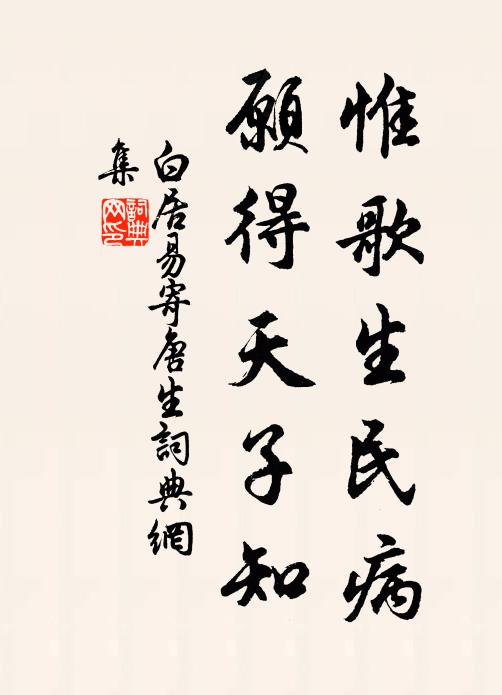 惟歌生民病
願得天子知
白居易寄唐生詞典網
集
詞典
网印